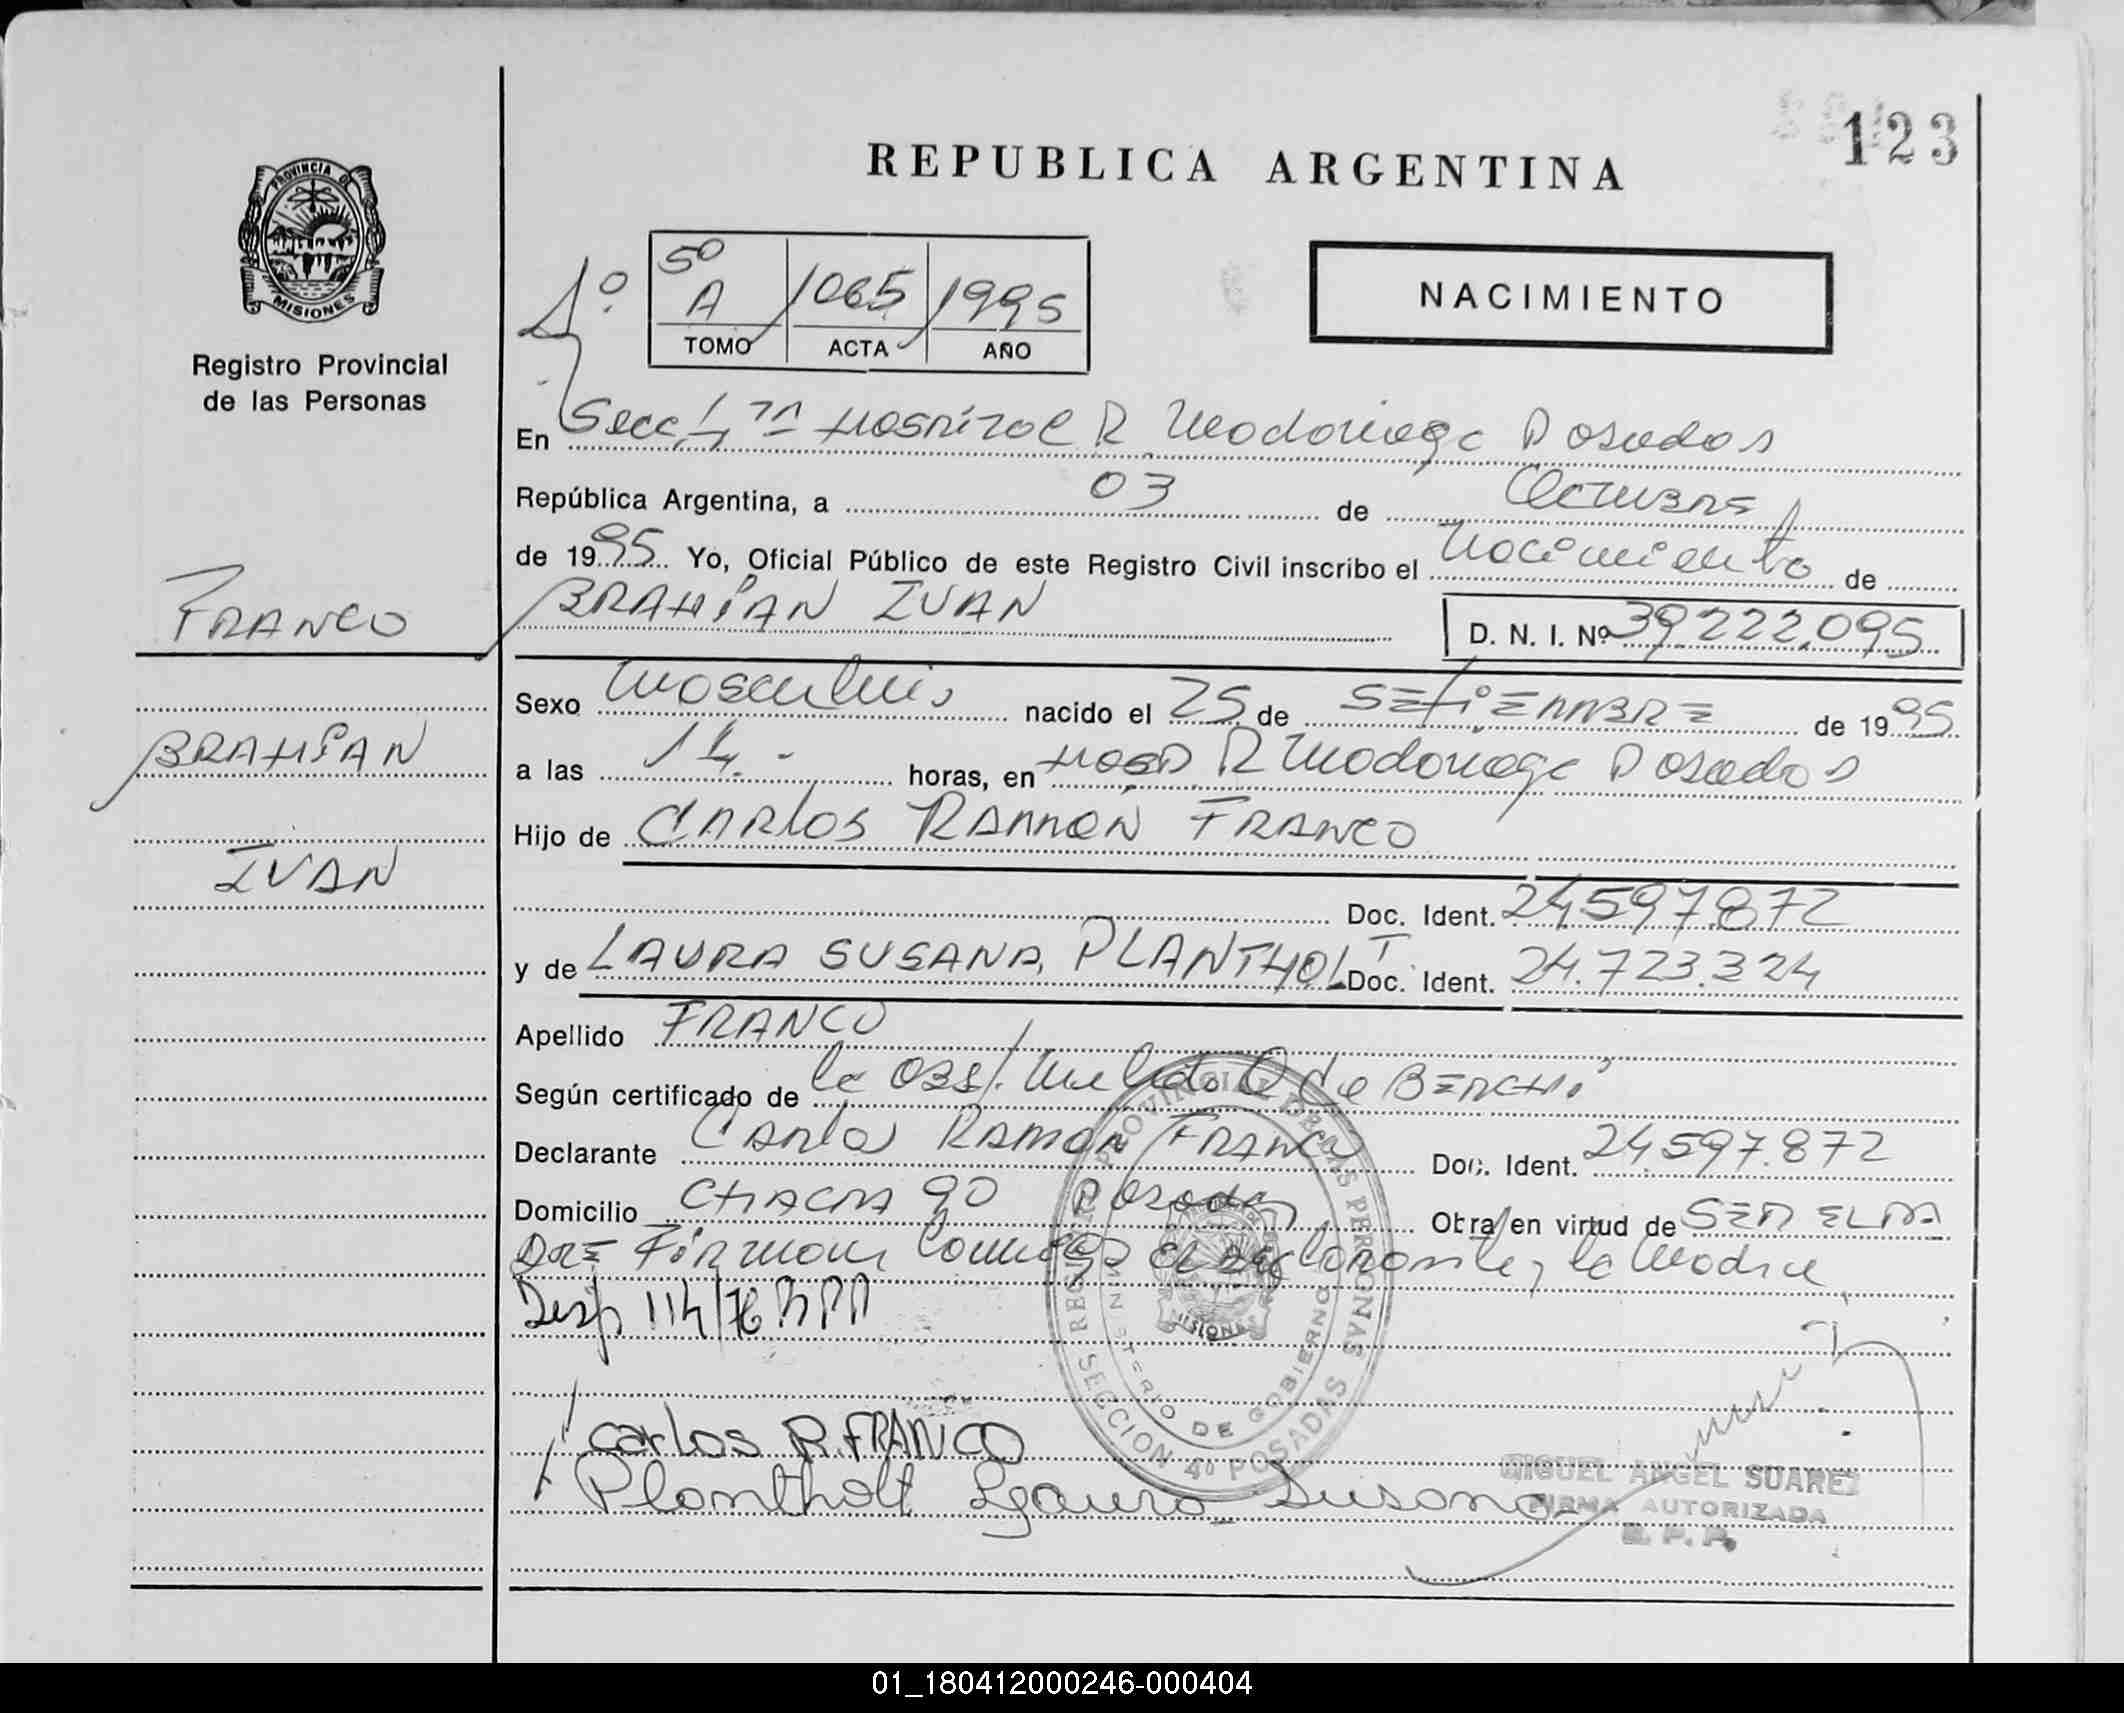 123
REPUBLICA ARGENTINA
PROVINCIA DE
MISIONES
Registro Provincial
de las Personas
4º
5º
A 1065 1995
TOMO ACTA AÑO
NACIMIENTO
En Secc 4ta Hospital R Madariaga Posadas
República Argentina, a 03 de Octubre
de 1995 Yo, Oficial Público de este Registro Civil inscribo el nacimiento de
FRANCO
BRAHIAN IVAN D. N. I. Nº 39.222.095
Sexo masculino nacido el 25 de SETIEMBRE de 1995
BRAHIAN
a las 14.- horas, en HOSP R Madariaga Posadas
Hijo de CARLOS RAMÓN FRANCO
IVAN
Doc. Ident. 24.597.872
y de LAURA SUSANA PLANTHOLT Doc. Ident. 24.723.324
Apellido FRANCO
Según certificado de la OBS/. de BERCHI
Declarante Carlos RAMON FRANCO Doc. Ident. 24.597.872
Domicilio CHACRA 90 Posadas Obra en virtud de SER EL PA
DRE Firman conmigo el declarante y la Madre
Disp 114/76 RPP
REGISTRO PROVINCIAL DE LAS PERSONAS
MINISTERIO DE GOBIERNO
MISIONES
SECCION 4º POSADAS
Carlos R. FRANCO
Plantholt Laura Susana
MIGUEL ANGEL SUAREZ
FIRMA AUTORIZADA
R. P. P.
01_180412000246-000404